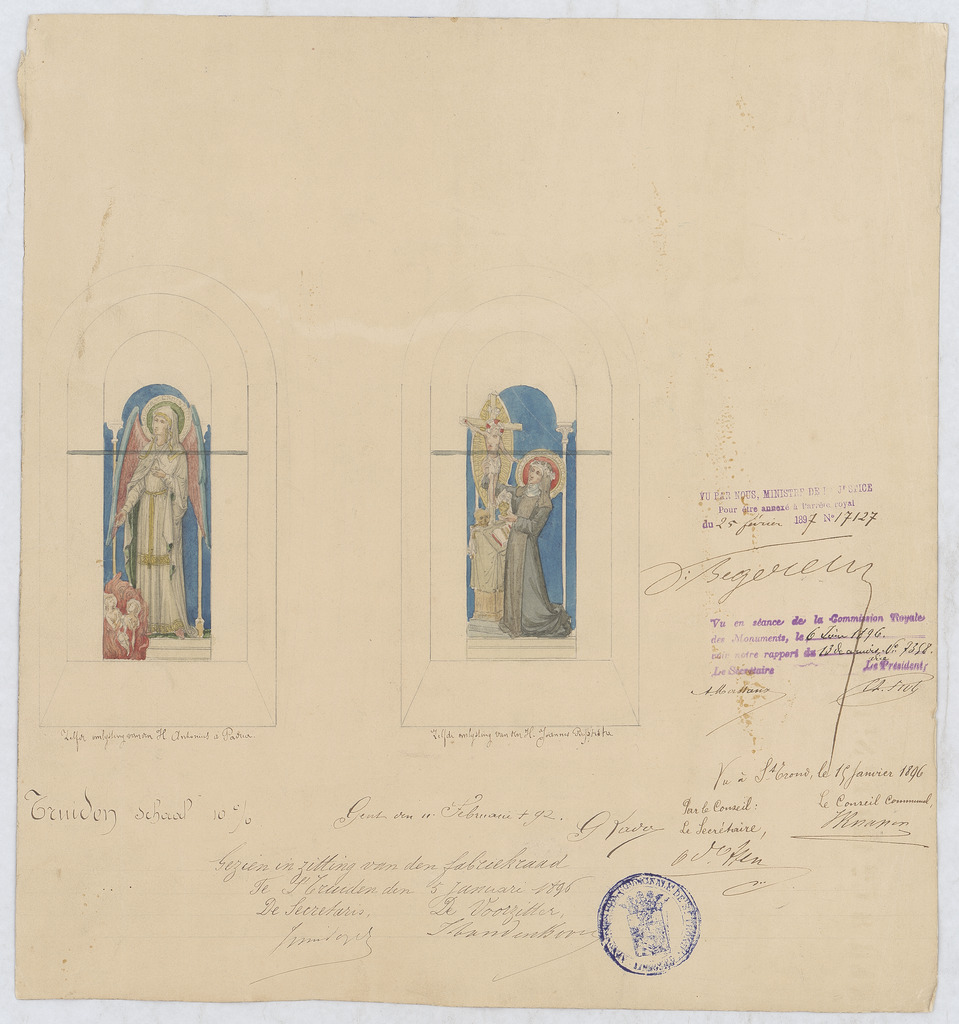 VU PAR NOUS, MINISTRE DE LA JUSTICE
Pour être annexé à l'arrêté royal
du 25 février 1897 N° 17127
Begerem
Vu en séance de la Commission Royale
des Monuments, le 6 1896.
voir notre rapport du 13 N° 7358.
Le Secrétaire Le Président,
Zelfde omlysting van den H. Antonius a Padua.
Zelfde omlysting van den H. Joannes Baptista
Vu à St Trond, le 15 Janvier 1896
Par le Conseil: Le Conseil Communal,
Le Secrétaire,
Truiden schaal 10 c/o
Gent den 11 Februarii + 92.
Gezien in zitting van den fabriekraad
Te St Truiden den 5 Januari 1896
De Secretaris, De Voorzitter,